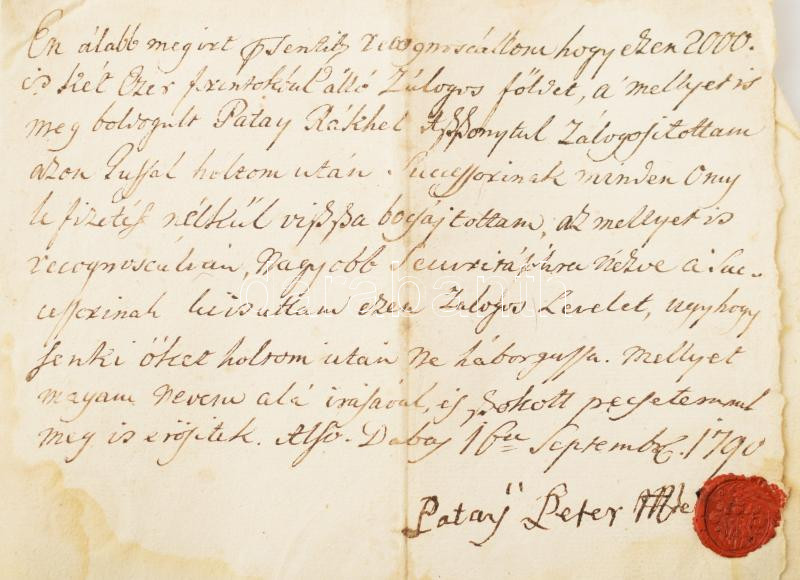 Én álabb megirt præsentib recognoscáltom hogy ezen 2000.
is Két Ezer forintokbul álló Zálogos földet, a' mellyet is
meg boldogult Patay Rákhel Aszszonytul Zálogositottam
azon Jussal holtom után Successorinak minden
le fizetés nélkül viszsza bocsájtottam, az mellyet is
recognoscálván, Nagyobb Securitásra nézve a' Suc-
cessorinak kiadtam ezen Zalogos Levelet, ugyhogy
senki őket holtom után ne háborgassa. Mellyet
magam Nevem alá irásával, és szokott pecsetemmel
meg is erősitek. Also-Dabas 16a Septembr. 1790
Pataÿ Peter
darabanth